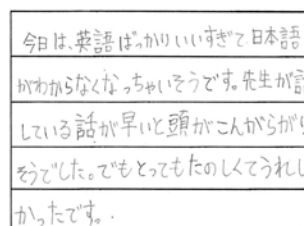 今日は、英語ばっかりいいすぎて日本語
がわからなくなっちゃいそうです。先生が
している話が早いと頭がこんがらが
そうでした。でもとってもたのしくてうれし
かったです。